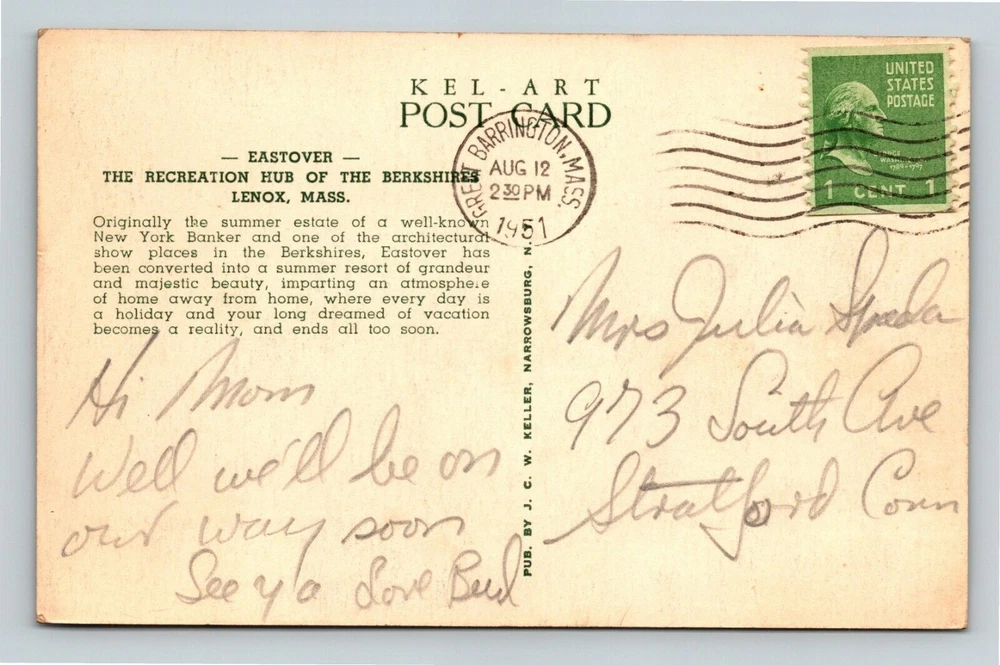 KEL-ART
POST CARD
— EASTOVER —
THE RECREATION HUB OF THE BERKSHIRES
LENOX, MASS.
Originally the summer estate of a well-known
New York Banker and one of the architectural
show places in the Berkshires, Eastover has
been converted into a summer resort of grandeur
and majestic beauty, imparting an atmosphere
of home away from home, where every day is
a holiday and your long dreamed of vacation
becomes a reality, and ends all too soon.
Hi Mom
Well we'll be on
our way soon
See ya Love Bud
PUB. BY J. C. W. KELLER, NARROWSBURG, N.
GREAT BARRINGTON, MASS.
AUG 12
2 30 PM
1951
UNITED
STATES
POSTAGE
GEORGE
WASHINGTON
1789-1797
1 CENT 1
Mrs Julia Spada
973 South Ave
Stratford Conn